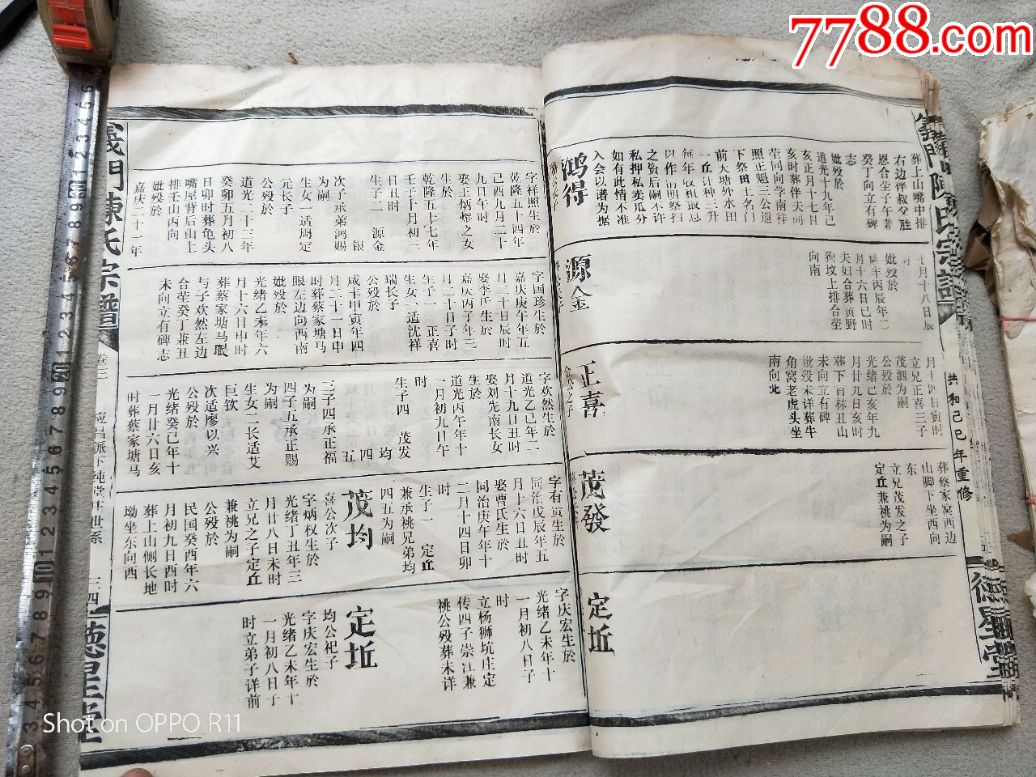 7788.com
義門陳氏宗譜
共和己巳年重修
德星堂
葬上山嘴中排
右边伴叔父胜
恩合茔子午兼
癸丁向立有碑
志
妣殁於
道光十九年己
亥正月十七日
亥时葬伴夫同
茔同学南祥
照正魁三公遗
下祭田土名门
前大塘外水田
一丘计种三升
每年收租取息
以作清明祭扫
之资后嗣不许
私押私卖瓜分
如有此情不准
入会以谱为据
十月十八日辰
时
妣殁於
咸丰丙辰年二
月十六日巳时
夫妇合葬黄野
狗坟上排合茔
向南
立兄正喜三子
茂泗为嗣
公殁於
光绪己亥年九
月廿九日亥时
葬下百标丑山
未向立有碑
妣殁未详葬牛
角窝老虎头坐
南向北
葬蔡家窝西边
山脚下坐西向
东
立兄茂发之子
定丘兼祧为嗣
鸿得
源金
正喜
茂發
定坵
字祥照生於
乾隆五十四年
己酉九月二十
九日午时
娶王炳炵之女
生於
乾隆五十七年
壬子十月初二
日丑时
生子二 源金
银
次子承弟鸿赐
为嗣
生女一适周定
元长子
公殁於
道光二十三年
癸卯五月初八
日卯时葬龟头
嘴屋背后山上
排壬山丙向
妣殁於
嘉庆二十一年
字国珍生於
嘉庆庚午年五
月二十日辰时
娶李氏生於
嘉庆丙子年二
月二十日子时
生子一 正喜
生女一适沈祥
瑞长子
公殁於
咸丰甲寅年四
月二十二日申
时葬蔡家塘马
眼左边向西南
妣殁於
光绪乙未年六
月十六日申时
葬蔡家塘马眼
与子欢然左边
合茔癸丁兼丑
未向立有碑志
字欢然生於
道光乙巳年二
月十九日丑时
娶刘先南长女
道光丙午年十
一月初九日午
时
生子四 茂发
均
四
五
三子四承正福
为嗣
四子五承正赐
为嗣
生女二长适艾
巨钦
次适廖以兴
公殁於
光绪癸巳年十
一月廿六日亥
时葬蔡家塘马
字有贡生於
同治戊辰年五
月十六日丑时
娶曹氏生於
同治庚午年十
二月十四日卯
时
生子一 定丘
兼承祧兄弟均
四五为嗣
茂均
喜公次子
字炳权生於
光绪丁丑年三
月廿八日未时
立兄之子定丘
兼祧为嗣
公殁於
民国癸酉年六
月初九日酉时
葬上山侧长地
坳坐东向西
字庆宏生於
光绪乙未年十
一月初八日子
时
立杨狮坑庄定
传四子崇江兼
祧公殁葬未详
定坵
均公祀子
字庆宏生於
光绪乙未年十
一月初八日子
时立弟子详前
義門陳氏宗譜
卷三
三四
德星堂
Shot on OPPO R11